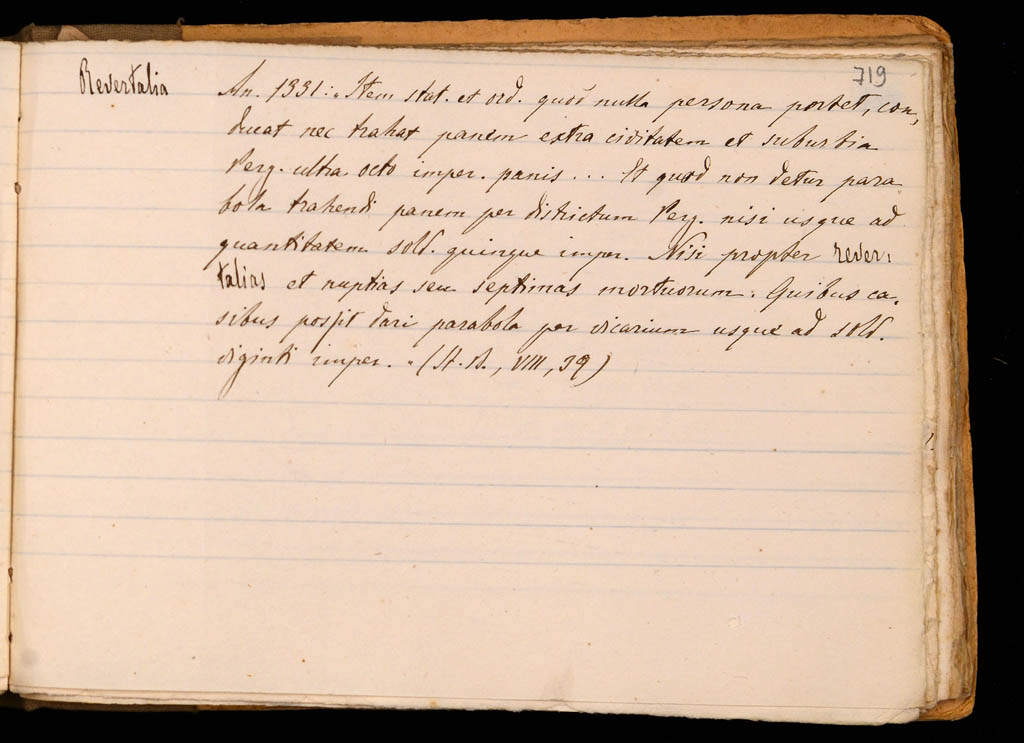 719
Revertalia
An. 1331: "Item stat. et ord. quod nulla persona portet, con,
ducat nec trahat panem extra civitatem et suburbia
Perg. ultra octo imper. panis ... Et quod non detur para
bola trahendi panem per districtum Perg. nisi usque ad
quantitatem sold. quinque imper. Nisi propter rever,
talias et nuptias seu septimas mortuorum. Quibus ca,
sibus possit dari parabola per vicarium usque ad sold.
viginti imper. " (St. B., VIII, 39)